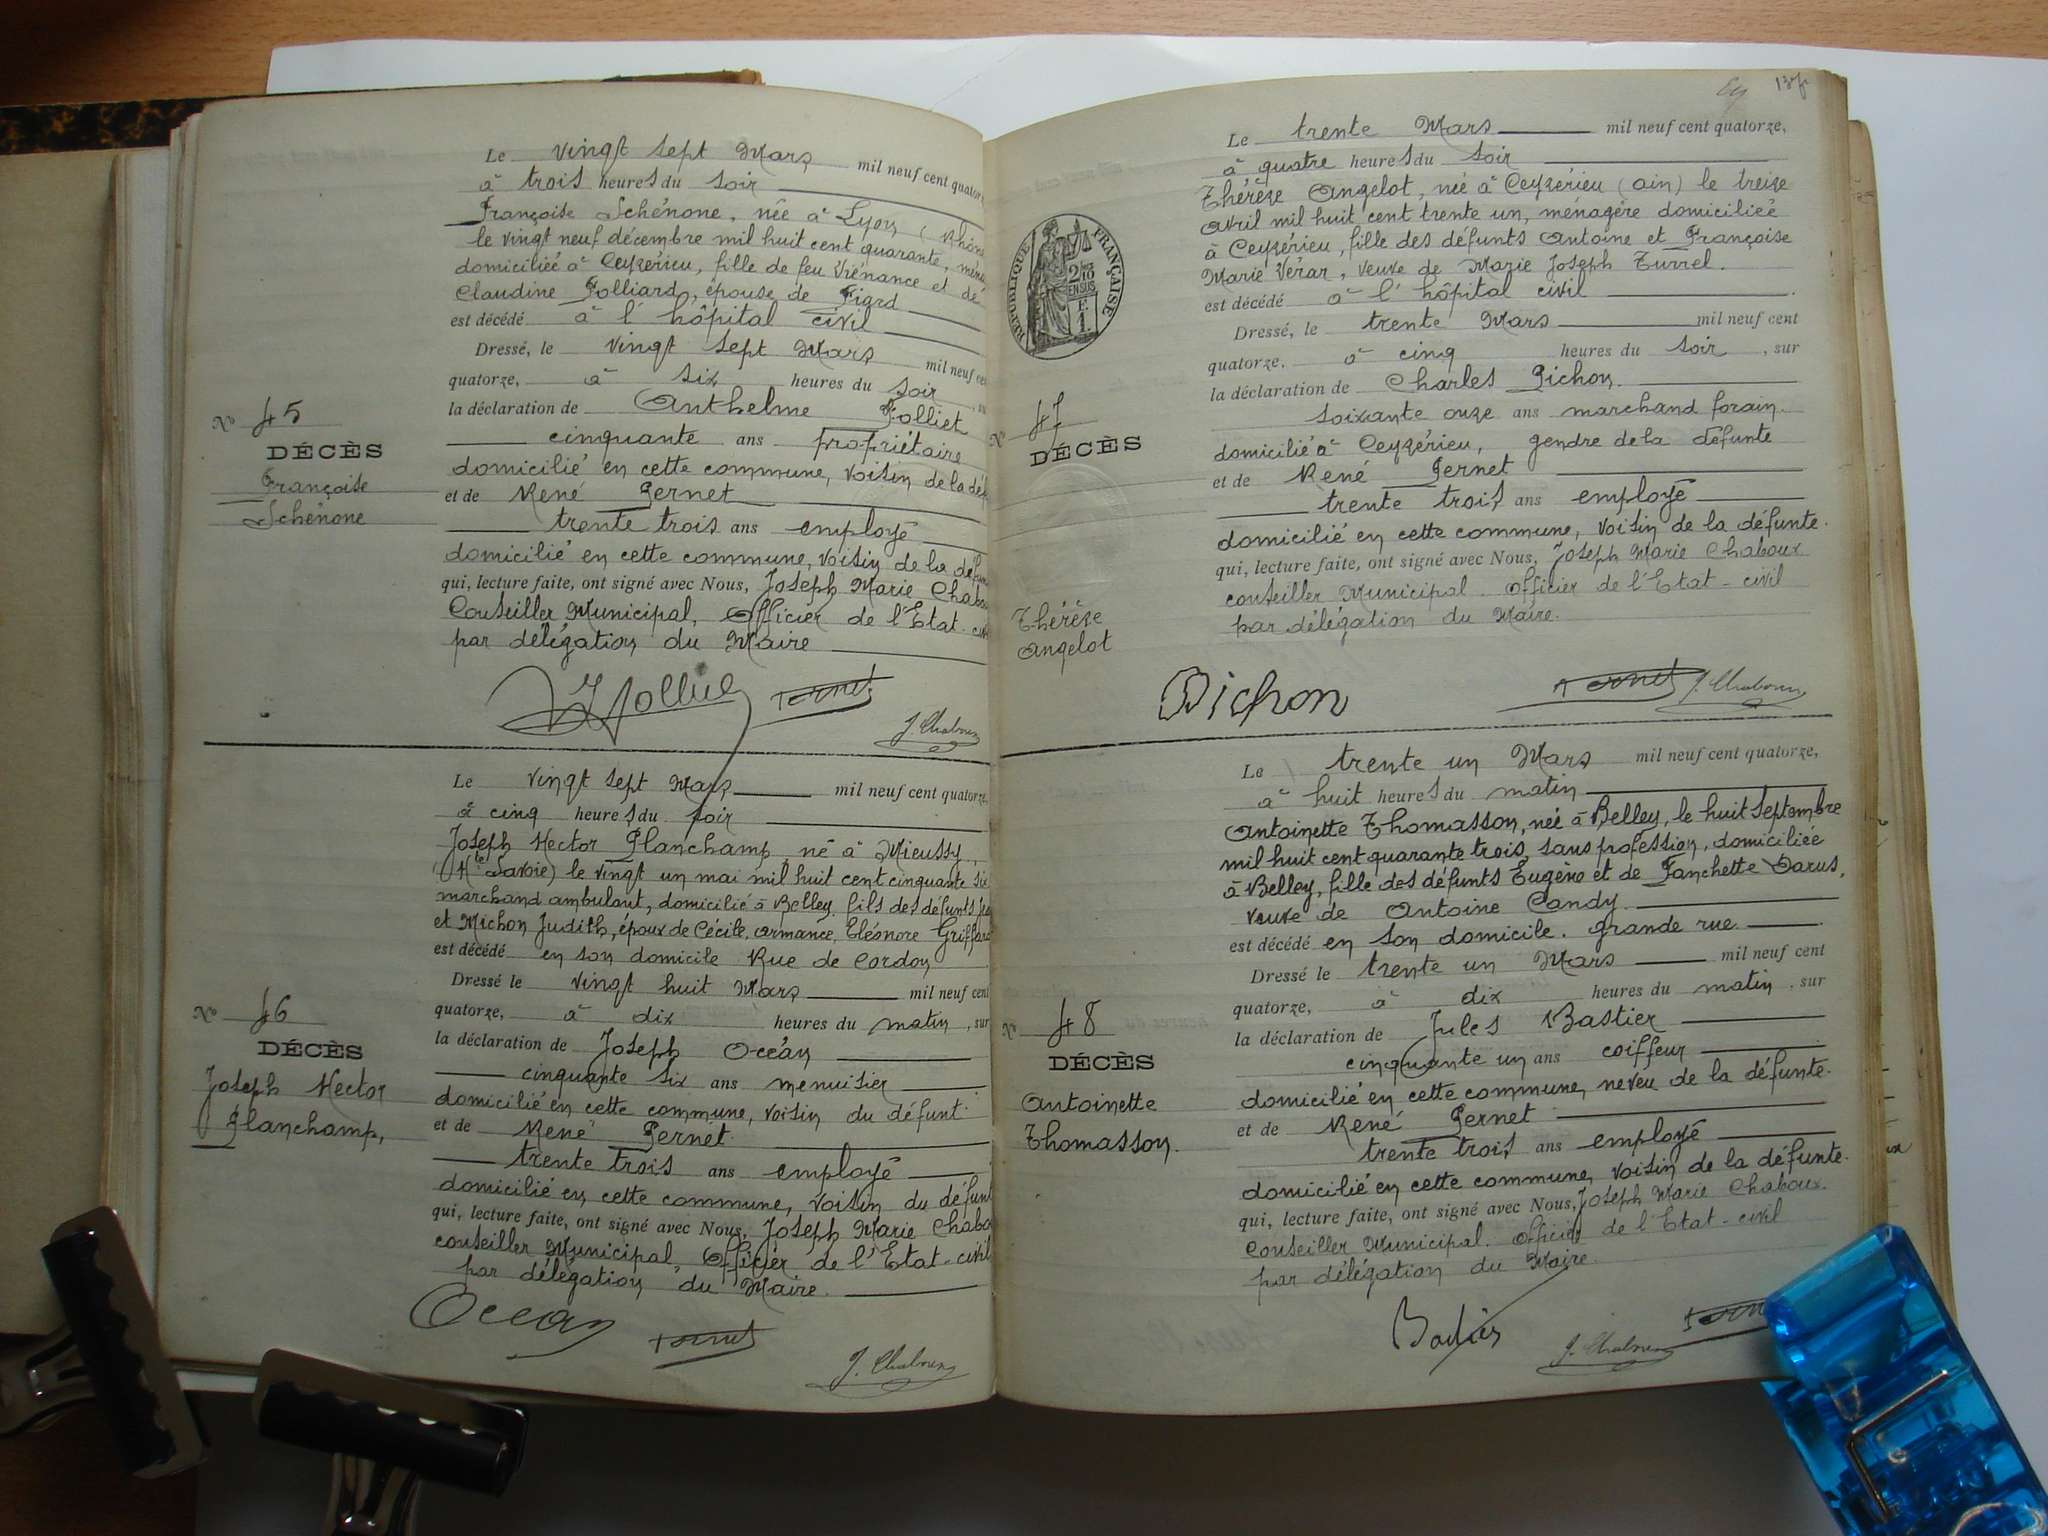 Le vingt sept Mars mil neuf cent
à trois heures du soir
Françoise Schénone, née à Lyon
le vingt neuf décembre mil huit cent quarante,
domiciliée à Ceyzérieu, fille de feu Viénance et
Claudine Folliard, épouse de
est décédé à l'hôpital civil
Dressé, le vingt sept Mars mil neuf
quatorze, à six heures du soir
la déclaration de Anthelme Folliet
cinquante ans propriétaire
domicilié en cette commune, voisin de la
et de René Pernet
trente trois ans employé
domicilié en cette commune, voisin de la
qui, lecture faite, ont signé avec Nous, Joseph Marie
Conseiller Municipal, Officier de l'Etat
par délégation du Maire
No 45
DÉCÈS
Françoise
Schénone
Pernet
J. Chaboux
Le vingt sept Mars mil neuf cent quatorze,
à cinq heures du soir
Joseph Hector Planchamp né à Mieussy,
(Hte Savoie) le vingt un mai mil huit cent cinquante six
marchand ambulant, domicilié à Belley, fils des défunts
et Michon Judith, époux de Cécile, armance, Eléonore
est décédé en son domicile Rue de Cordon
Dressé le vingt huit Mars mil neuf cent
quatorze, à dix heures du matin, sur
la déclaration de Joseph Océan
cinquante six ans menuisier
domicilié en cette commune, voisin du défunt
et de René Pernet
trente trois ans employé
domicilié en cette commune, voisin du
qui, lecture faite, ont signé avec Nous, Joseph Marie
conseiller Municipal, Officier de l'Etat-civil
par délégation du Maire.
No 46
DÉCÈS
Joseph Hector
Planchamp,
Ocean
Pernet
J. Chaboux
Le trente Mars mil neuf cent quatorze,
à quatre heures du soir
Thérèse Angelot, née à Ceyzérieu (ain) le treize
avril mil huit cent trente un, ménagère domiciliée
à Ceyzérieu, fille des défunts Antoine et Françoise
Marie Vérar, veuve de Marie Joseph Turrel.
est décédé à l'hôpital civil
Dressé, le trente Mars mil neuf cent
quatorze, à cinq heures du soir, sur
la déclaration de Charles Pichon.
soixante onze ans marchand forain.
domicilié à Ceyzérieu, gendre de la défunte
et de René Pernet
trente trois ans employé
domicilié en cette commune, voisin de la défunte.
qui, lecture faite, ont signé avec Nous, Joseph Marie Chaboux
conseiller Municipal. Officier de l'Etat-civil
par délégation du Maire.
RÉPUBLIQUE FRANÇAISE
No 47
DÉCÈS
Thérèse
Angelot
Pichon
Pernet
J. Chaboux
Le trente un Mars mil neuf cent quatorze,
à huit heures du matin
Antoinette Thomasson, née à Belley, le huit Septembre
mil huit cent quarante trois, sans profession, domiciliée
à Belley, fille des défunts Eugène et de Fanchette Darus,
veuve de Antoine Candy.
est décédé en son domicile. grande rue.
Dressé le trente un Mars mil neuf cent
quatorze, à dix heures du matin, sur
la déclaration de Jules Bastier
cinquante un ans coiffeur
domicilié en cette commune, neveu de la défunte.
et de René Pernet
trente trois ans employé
domicilié en cette commune, voisin de la défunte.
qui, lecture faite, ont signé avec Nous, Joseph Marie Chaboux.
Conseiller Municipal. Officier de l'Etat-civil
par délégation du Maire.
No 48
DÉCÈS
Antoinette
Thomasson.
Bastier
J. Chaboux
Pernet